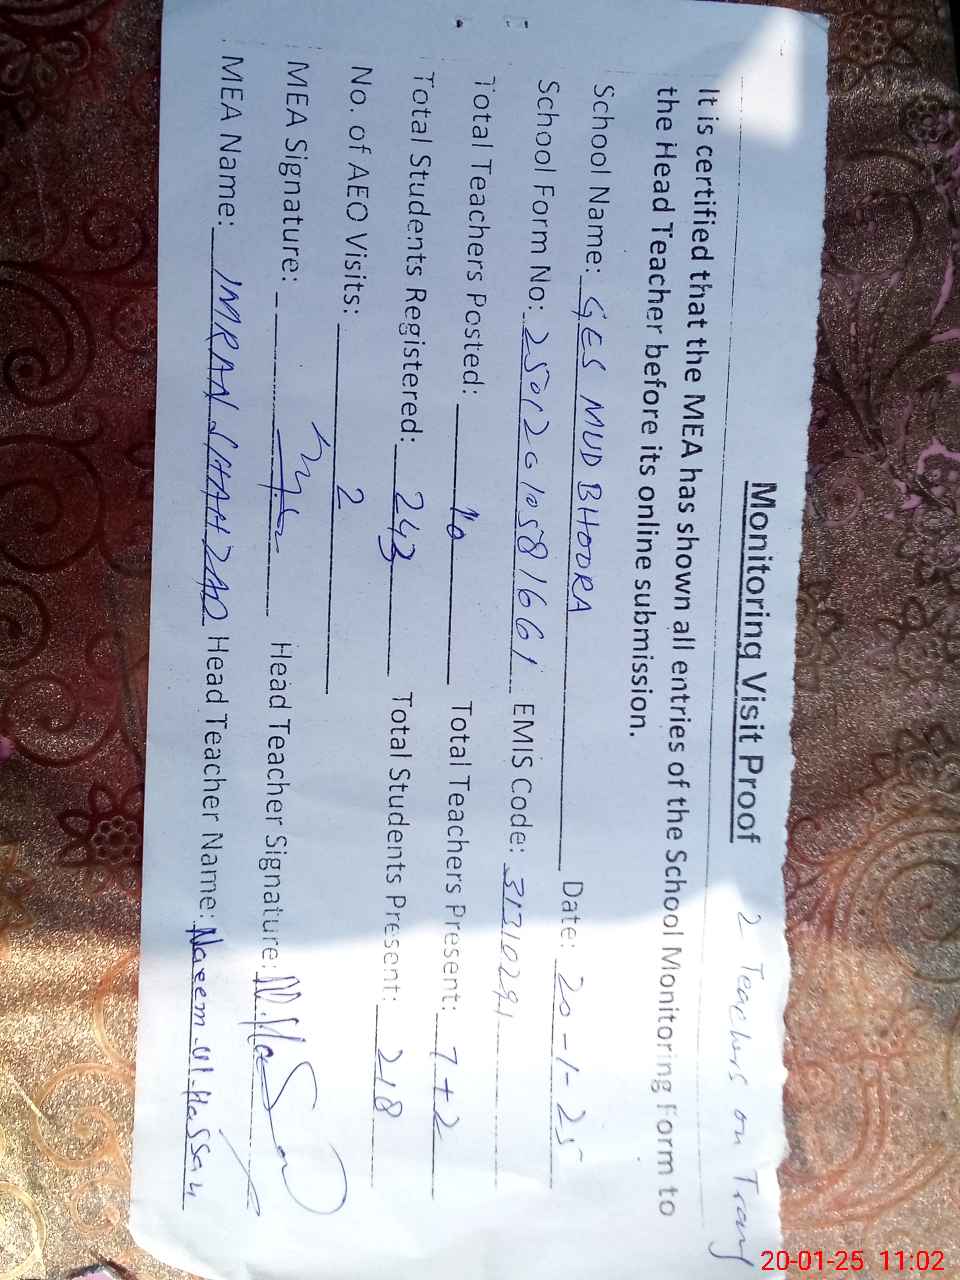 Monitoring Visit Proof 2 Teachers on
It is certified that the MEA has shown all entries of the School Monitoring Form to
the Head Teacher before its online submission.
School Name: GES MUD BHOORA Date: 20-1-25
School Form No: 25012010581661 EMIS Code: 31310291
Total Teachers Posted: 10 Total Teachers Present: 7+2
Total Students Registered: 243 Total Students Present: 218
No. of AEO Visits: 2
MEA Signature: Head Teacher Signature: N.Hassan
MEA Name: IMRAN SHAHZAD Head Teacher Name: Naeem-ul-Hassan
20-01-25 11:02